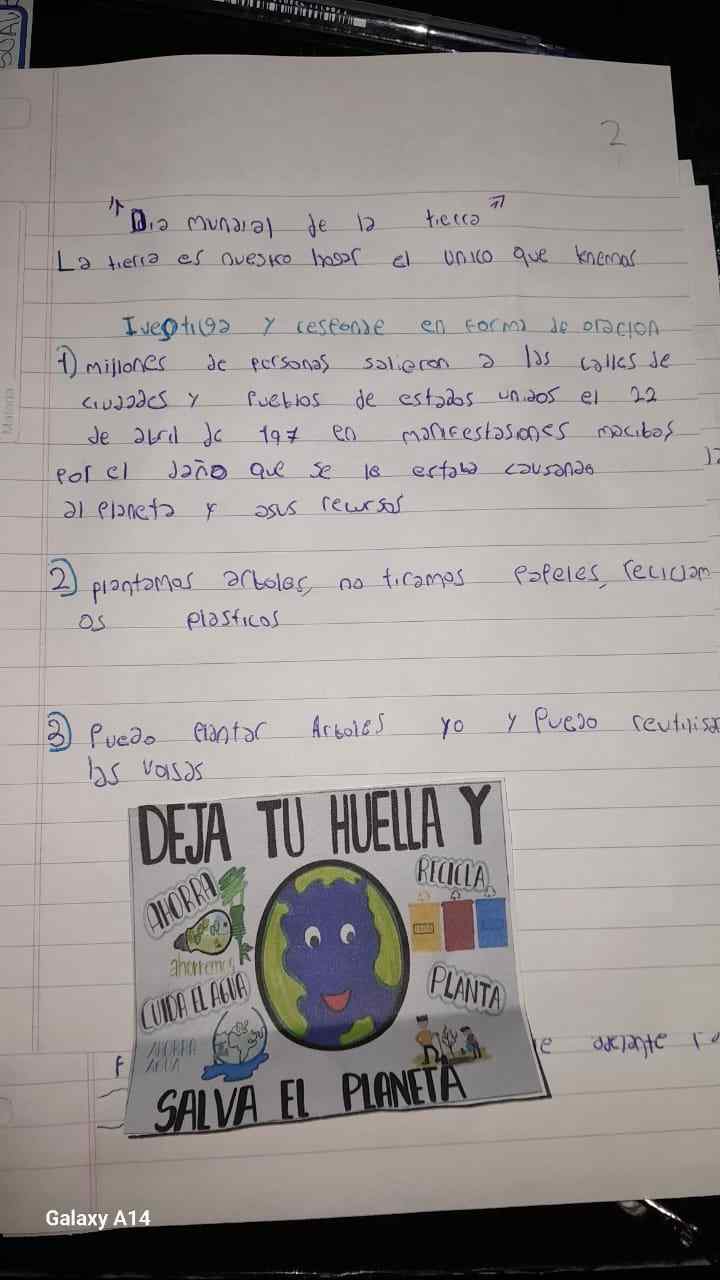 2
"Dia mundial de la tierra"
La tierra es nuestro hogar el unico que tenemos
Ivestiga y responde en forma de oracion
1) millones de personas salieron a las calles de
ciudades y Pueblos de estados unidos el 22
de abril de 197 en manifestasiones macibas
por el daño que se le estaba causando
al planeta y asus recursos
2) plantamos arboles, no tiramos papeles, reciclam
os plasticos
3) Puedo plantar Arboles yo y Puedo reutilisa
las vasas
DEJA TU HUELLA Y
AHORRA
RECICLA
ahorremos
CUIDA EL AGUA
PLANTA
AHORRA
AGUA
SALVA EL PLANETA
Galaxy A14